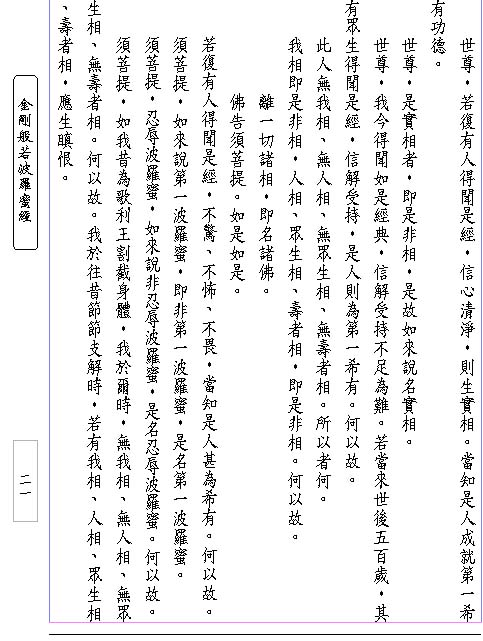 世尊．若復有人得聞是經．信心清淨．則生實相。當知是人成就第一希
有功德。
世尊．是實相者．即是非相．是故如來說名實相。
世尊．我今得聞如是經典．信解受持不足為難。若當來世後五百歲．其
有眾生得聞是經．信解受持．是人則為第一希有。何以故。
此人無我相、無人相、無眾生相、無壽者相。所以者何。
我相即是非相．人相、眾生相、壽者相．即是非相。何以故。
離一切諸相．即名諸佛。
佛告須菩提。如是如是。
若復有人得聞是經．不驚、不怖、不畏．當知是人甚為希有。何以故。
須菩提．如來說第一波羅蜜．即非第一波羅蜜．是名第一波羅蜜。
須菩提．忍辱波羅蜜．如來說非忍辱波羅蜜．是名忍辱波羅蜜。何以故。
須菩提．如我昔為歌利王割截身體．我於爾時．無我相、無人相、無眾
生相、無壽者相。何以故。我於往昔節節支解時．若有我相、人相、眾生相
、壽者相．應生瞋恨。
金剛般若波羅蜜經
二一